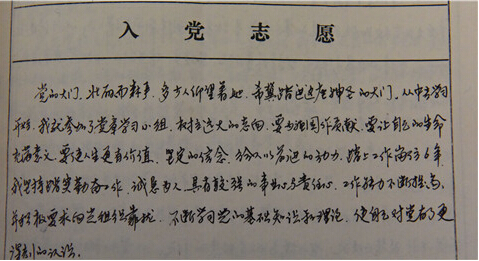 入党志愿
党的大门,壮丽而新事,多少人仰望着她,希冀踏进这座神圣的大门。从中专学习
开始,我就参加了党章学习小组,树立远大的志向,要为祖国作贡献,要让自己的生命
充满意义,要使人生更有价值,坚定的信念,给人以前进的动力,踏上工作岗位6年
我坚持踏实勤奋工作,诚恳为人,具有较强的事业心责任心,工作能力不断提高,
并积极要求向党组织靠拢,不断学习党的基础知识和理论,使自己对党有了更
深刻的认识。